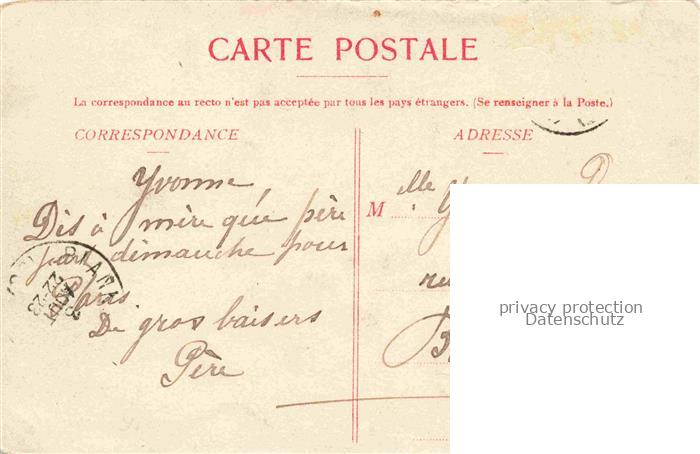 CARTE POSTALE
La correspondance au recto n'est pas acceptée par tous les pays étrangers. (Se renseigner à la Poste.)
CORRESPONDANCE
Yvonne,
Dis à mère que père
part dimanche pour
Paris
De gros baisers
Père
ADRESSE
M
elle
privacy protection
Datenschutz